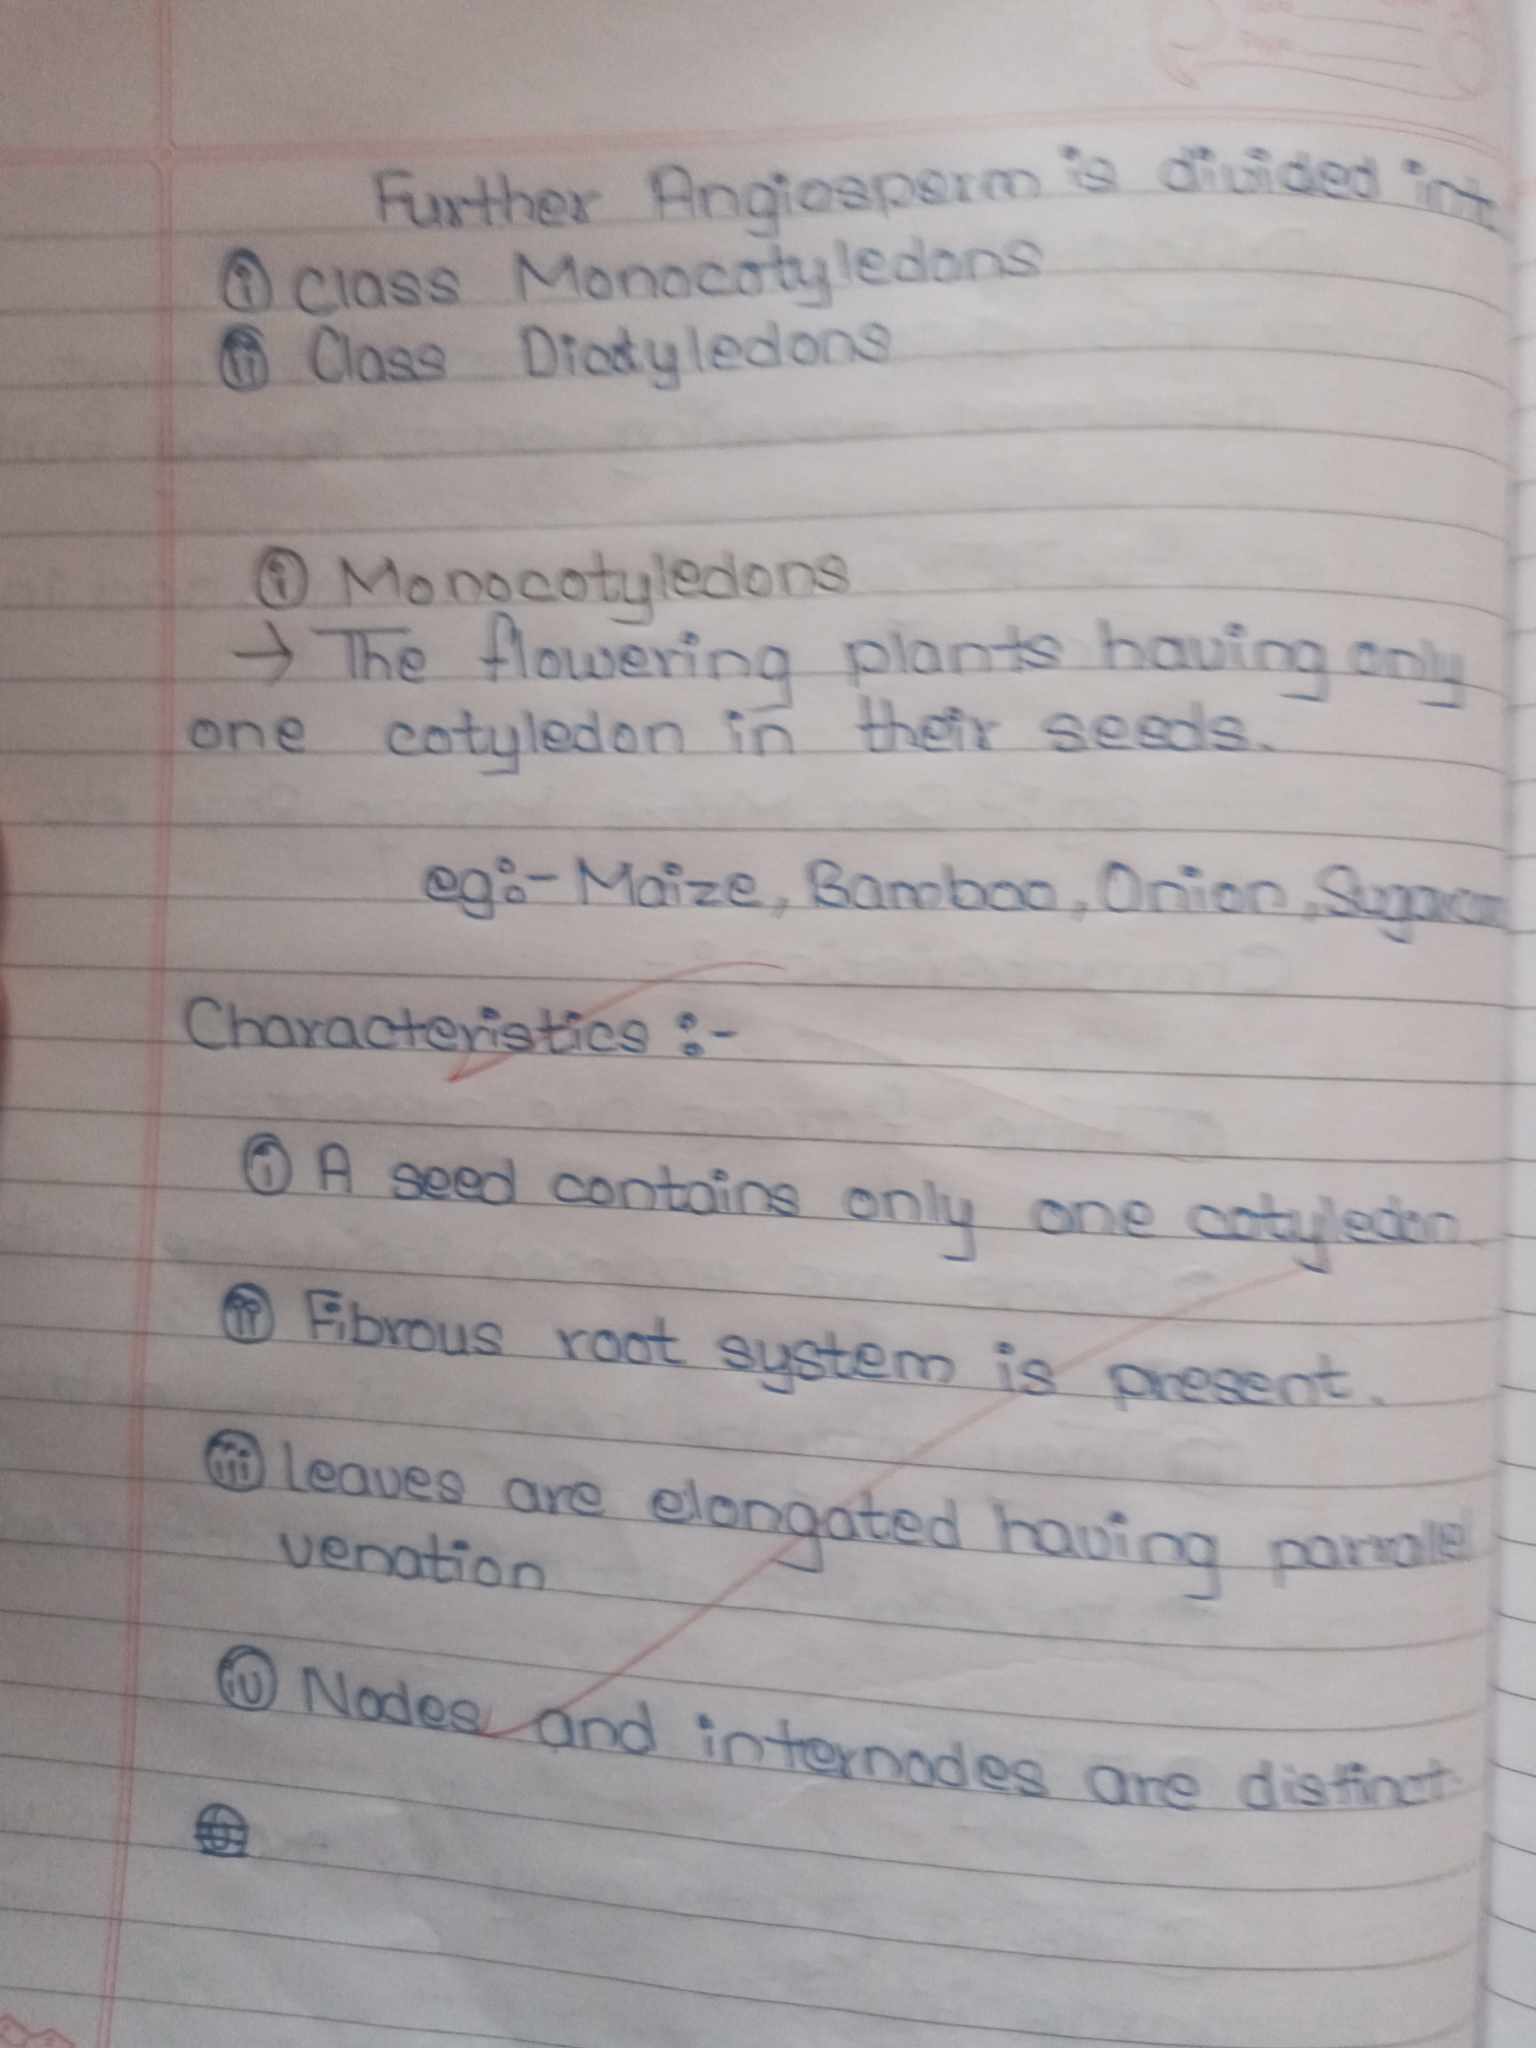 Further Angiosperm is divided int
(i) Class Monocotyledons
(ii) Class Diotyledons
(i) Monocotyledons
→ The flowering plants having only
one cotyledon in their seeds.
eg:- Maize, Bamboo, Onion, Sugarcan
Characteristics :-
(i) A seed contains only one cotyledon
(ii) Fibrous root system is present.
(iii) leaves are elongated having parralel
venation
(iv) Nodes and internodes are distinct